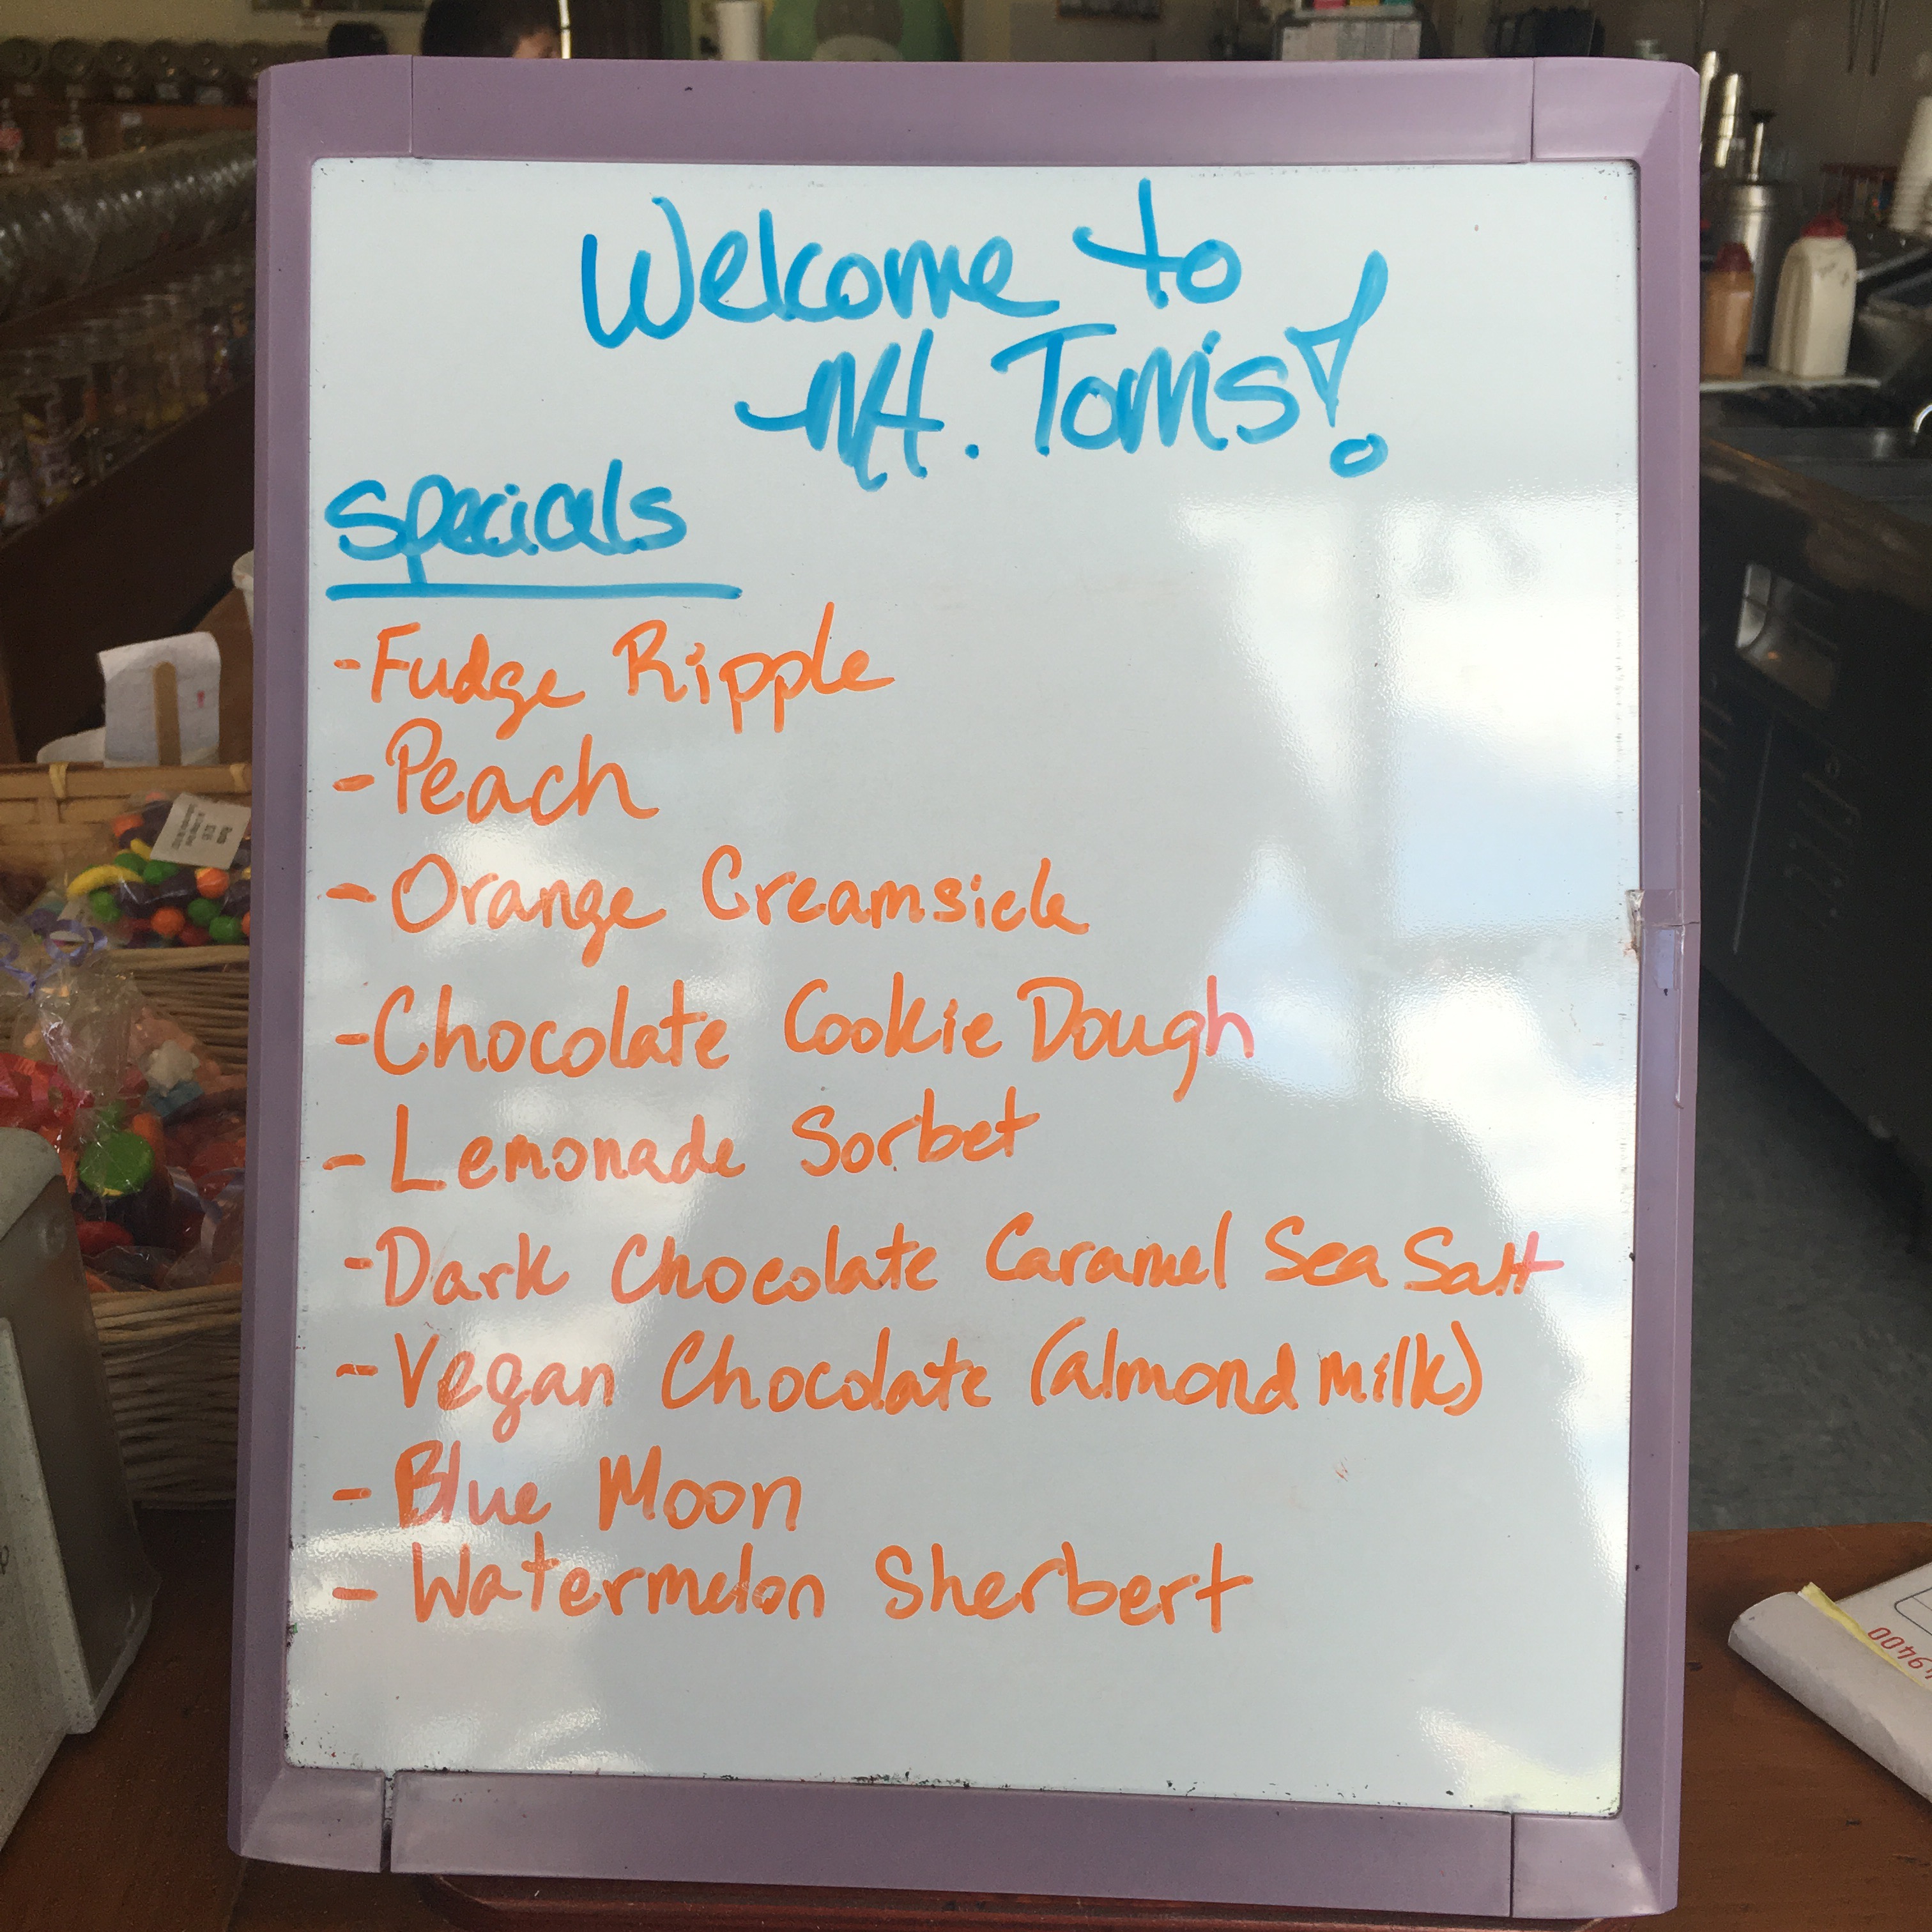 Welcome to
Mt. Tom's!
Specials
- Fudge Ripple
- Peach
- Orange Creamsicle
- Chocolate Cookie Dough
- Lemonade Sorbet
- Dark Chocolate Caramel Sea Salt
- Vegan Chocolate (almond milk)
- Blue Moon
- Watermelon Sherbert